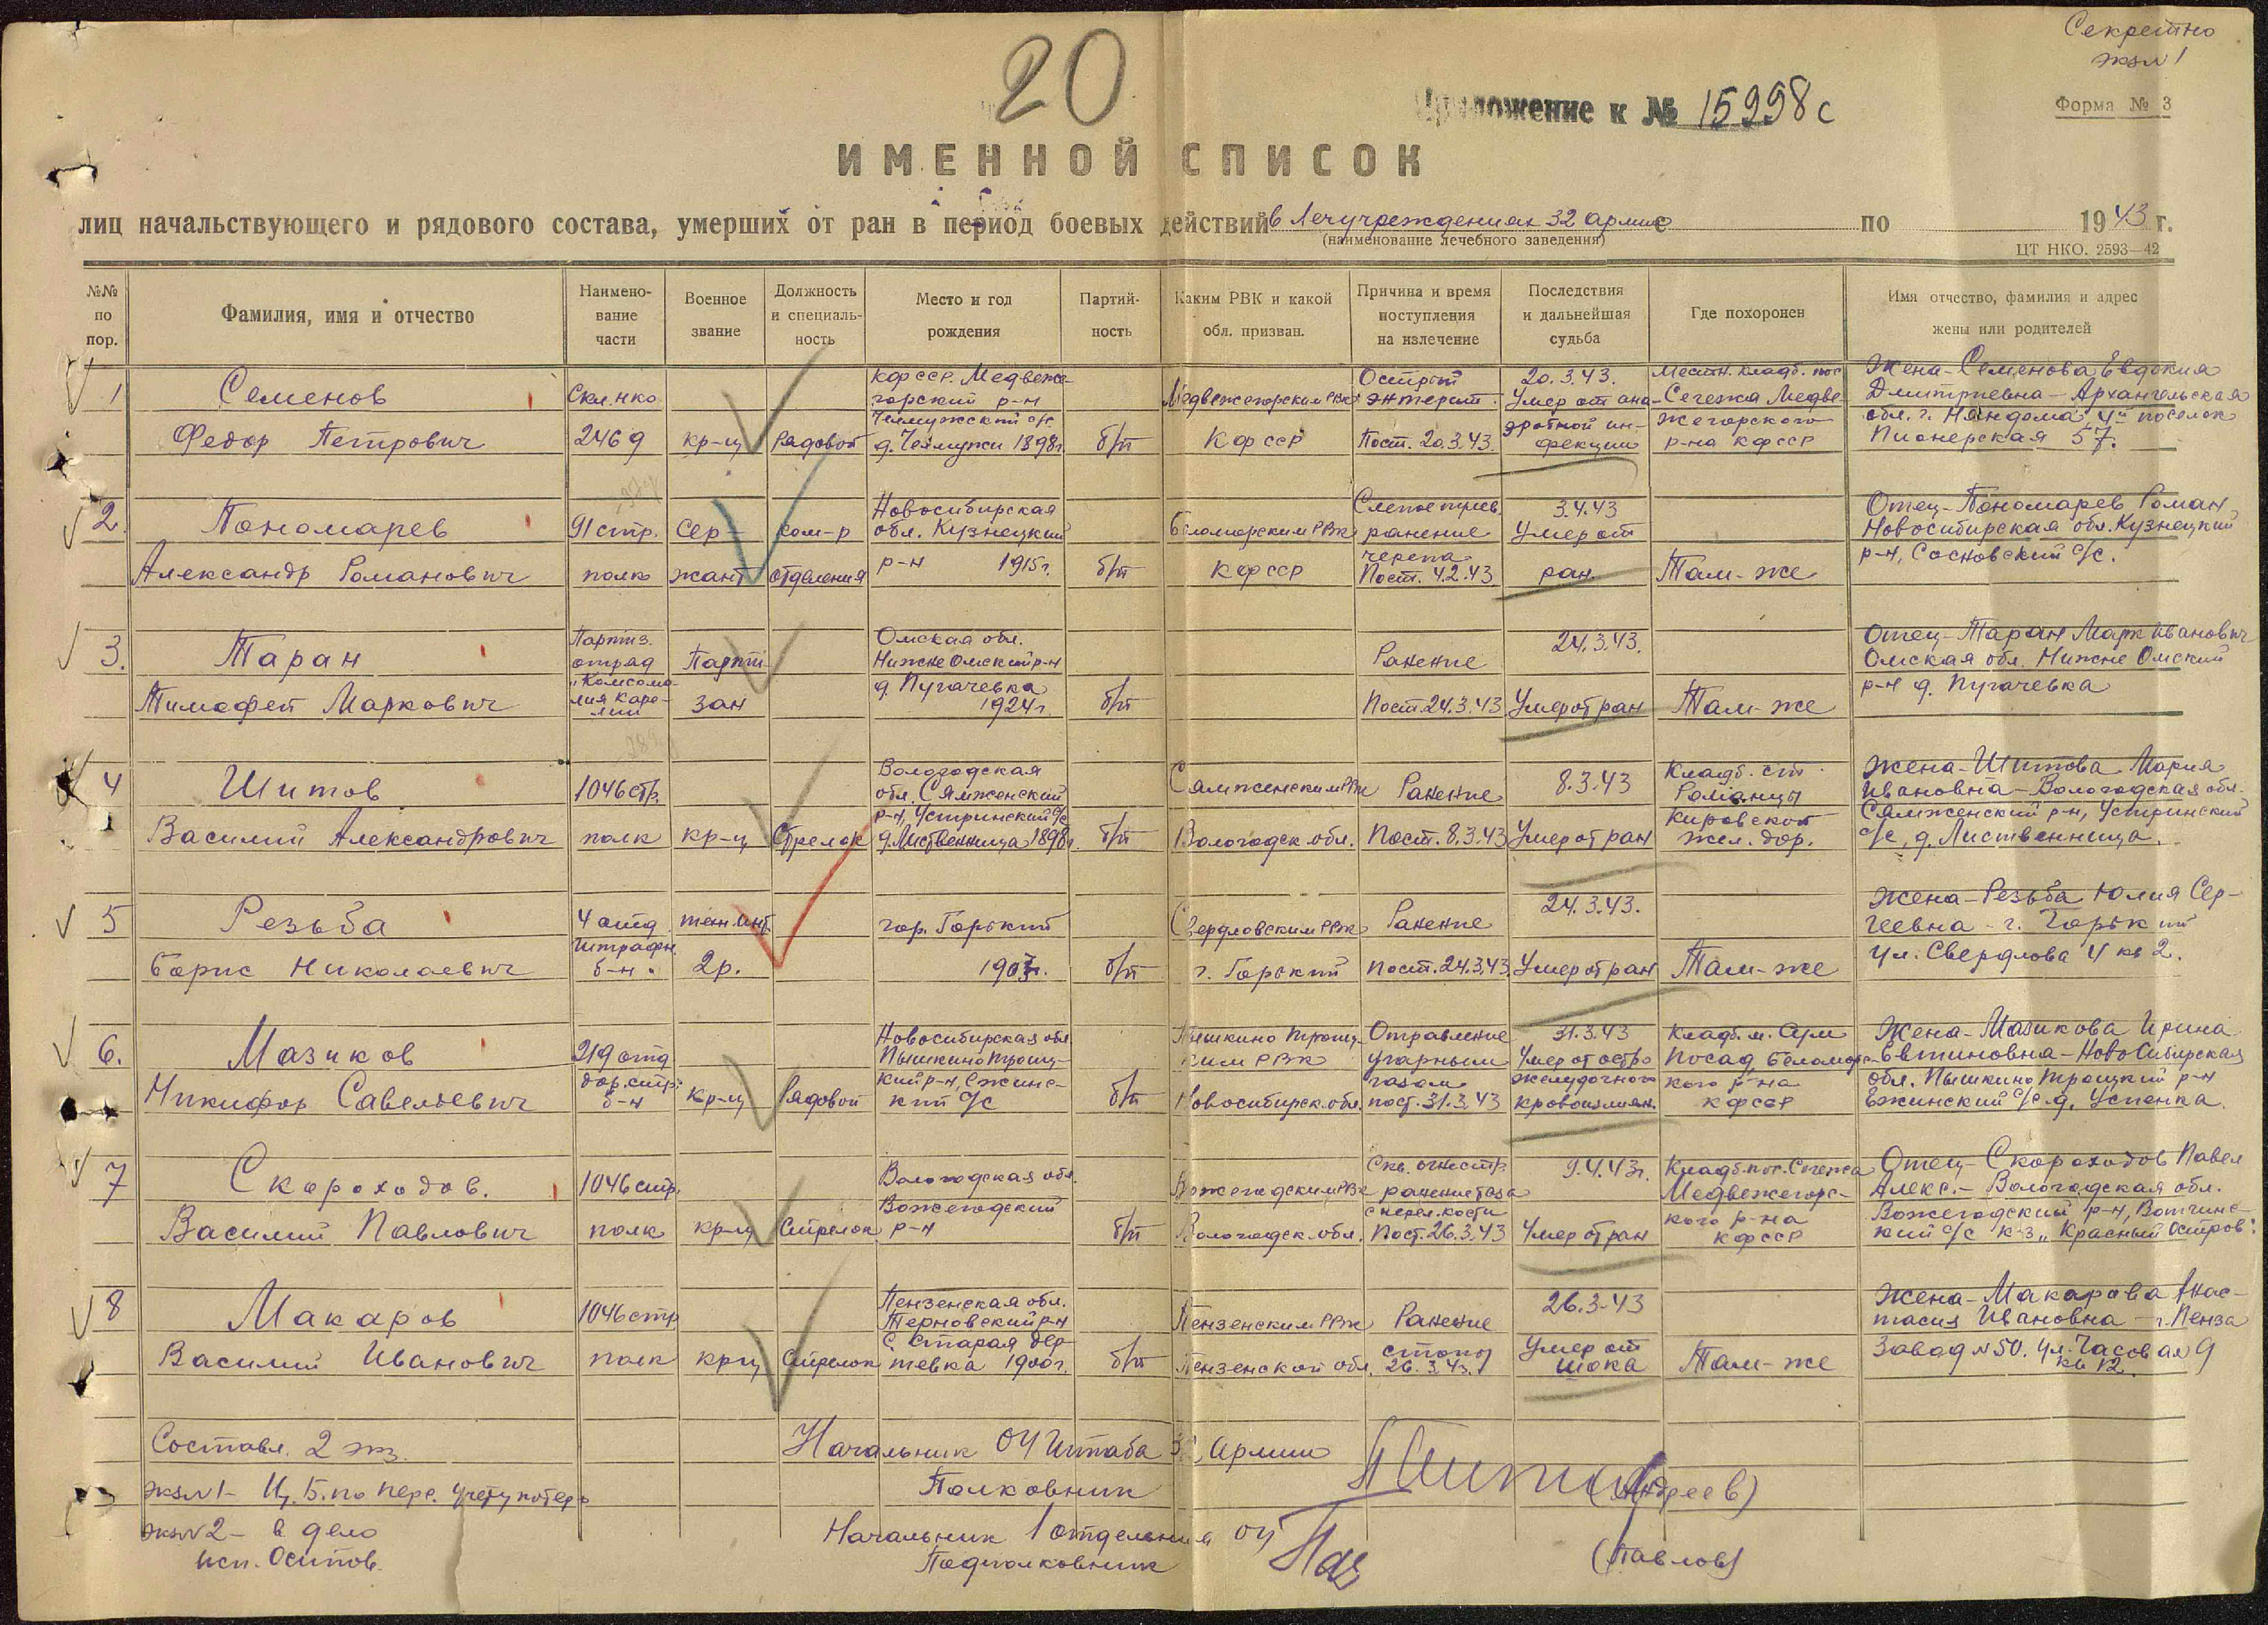 Секретно
экз №1
20
Приложение к № 15998с
Форма № 3
ИМЕННОЙ СПИСОК
лиц начальствующего и рядового состава, умерших от ран в период боевых действий в Лечучреждениях 32 армии с по 1943 г.
(наименование лечебного заведения)
ЦТ НКО. 2593—42
№№ по пор.
Фамилия, имя и отчество
Наимено-
вание
части
Военное
звание
Должность
и специаль-
ность
Место и год
рождения
Партий-
ность
Каким РВК и какой
обл. призван.
Причина и время
поступления
на излечение
Последствия
и дальнейшая
судьба
Где похоронен
Имя отчество, фамилия и адрес
жены или родителей
1
Семенов
Федор Петрович
Скл. нко
2469
кр-ц
Рядовой
КФССР. Медвеже-
горский р-н
Челмужский с/с
д. Челмужи 1898г.
б/п
Медвежегорским РВК
КФССР
Острый
энтерит.
Пост. 20.3.43.
20.3.43.
Умер от ана-
эробной ин-
фекции
Местн. кладб. пос
Сегежа Медве-
жегорского
р-на КФССР
Жена-Семенова Евдокия
Дмитриевна-Архангельская
обл. г. Няндома 4й поселок
Пионерская 57.
2.
Пономарев
Александр Романович
91 стр.
полк
Сер-
жант
ком-р
отделения
Новосибирская
обл. Кузнецкий
р-н 1915г.
б/п
Беломорским РВК
КФССР
Слепое
ранение
черепа
Пост. 4.2.43.
3.4.43
Умер от
ран.
Там-же
Отец-Пономарев Роман
Новосибирская обл. Кузнецкий
р-н, Сосновский с/с.
3.
Таран
Тимофей Маркович
Партиз.
отряд
„Комсомо-
лия Каре-
лии
Парти-
зан
Омская обл.
Нижне Омский р-н
д. Пугачевка
1924г.
б/п
Ранение
Пост. 24.3.43
24.3.43.
Умер от ран
Там-же
Отец-Таран Марк Иванович
Омская обл. Нижне Омский
р-н д. Пугачевка
4
Шитов
Василий Александрович
1046 стр.
полк
кр-ц
Стрелок
Вологодская
обл. Сямженский
р-н, Устринский с/с
д. Лиственница 1898г.
б/п
Сямженским РВК
Вологодск. обл.
Ранение
Пост. 8.3.43
8.3.43
Умер от ран
Кладб. ст.
Кировской
жел. дор.
Жена-Шитова Мария
Ивановна-Вологодская обл.
Сямженский р-н, Устринский
с/с, д. Лиственница.
5
Резьба
Борис Николаевич
4 отд
штрафн.
б-н.
техн. инт.
2р.
гор. Горький
б/п
Свердловским РВК
г. Горький
Ранение
Пост. 24.3.43.
24.3.43.
Умер от ран
Там-же
Жена-Резьба Юлия Сер-
геевна-г. Горький
ул. Свердлова 4 кв 2.
6.
Мазиков
Никифор Савельевич
219 отд
дор. стр.
б-н
кр-ц
Рядовой
Новосибирская обл
Пышкино Троиц-
кий р-н, Ежинс-
кий с/с
б/п
Пышкино Троиц-
ким РВК
Новосибирск. обл.
Отравление
угарным
газом
пост. 31.3.43
31.3.43
Умер от остро
желудочного
кровоизлиян.
Кладб. м. Сум
Посад Беломорс-
кого р-на
КФССР
Жена-Мазикова Ирина
Евтиновна-Новосибирская
обл. Пышкино Троицкий р-н
Ежинский с/с д. Успенка.
7
Скороходов.
Василий Павлович
1046 стр.
полк
кр-ц
Стрелок
Вологодская обл.
Вожегодский
р-н
б/п
Вожегодским РВК
Вологодск. обл.
Скв. огнестр.
ранение таза
с перел. кости
Пост. 26.3.43
9.4.43г.
Умер от ран
Кладб. пос. Сегежа
Медвежегорс-
кого р-на
КФССР
Отец-Скороходов Павел
Алекс.-Вологодская обл.
Вожегодский р-н, Вотчинс-
кий с/с к-з „Красный Остров".
8
Макаров
Василий Иванович
1046 стр
полк
кр-ц
Стрелок
Пензенская обл.
Терновский р-н
с. Старая Дер-
тевка 1900г.
б/п
Пензенским РВК
Пензенской обл.
Ранение
стопы
26.3.43.
26.3.43
Умер от
шока
Там-же
Жена-Макарова Анас-
тасия Ивановна-г. Пенза
Завод №50. ул. Часовая 9
кв 12.
Составл. 2 экз.
экз №1- Ц.Б. по перс. учету потерь
экз №2- в дело
исп. Осипов.
Начальник ОУ Штаба 32 Армии
Полковник
(Андреев)
Начальник 1 отделения ОУ
Подполковник
(Павлов)